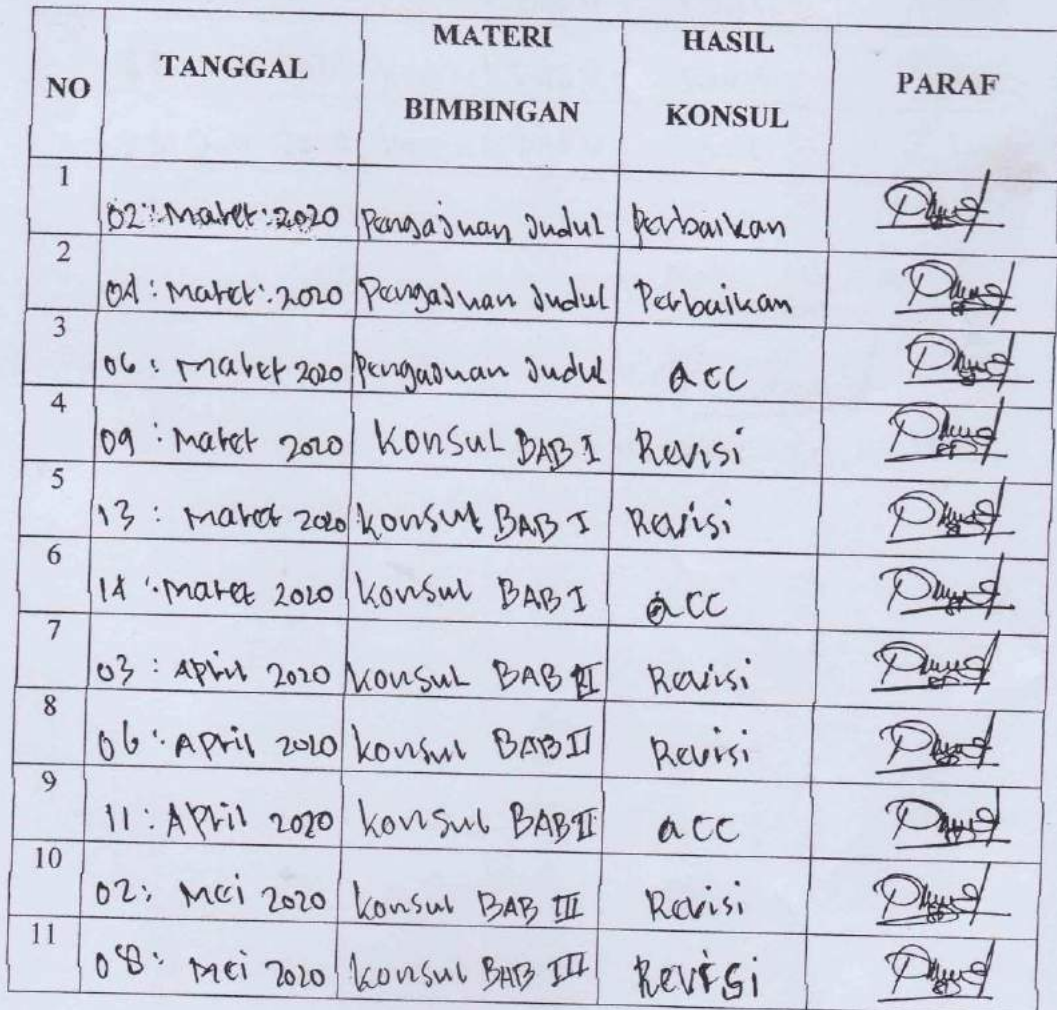 NO TANGGAL MATERI BIMBINGAN HASIL KONSUL PARAF
1 02: Maret: 2020 Pengajuan Judul Perbaikan
2 04: Maret: 2020 Pengajuan Judul Perbaikan
3 06: Maret 2020 Pengajuan Judul acc
4 09: Maret 2020 Konsul BAB I Revisi
5 13: Maret 2020 Konsul BAB I Revisi
6 14: Maret 2020 Konsul BAB I acc
7 03: April 2020 Konsul BAB II Revisi
8 06: April 2020 Konsul BAB II Revisi
9 11: April 2020 Konsul BAB II acc
10 02: Mei 2020 Konsul BAB III Revisi
11 08: Mei 2020 Konsul BAB III Revisi